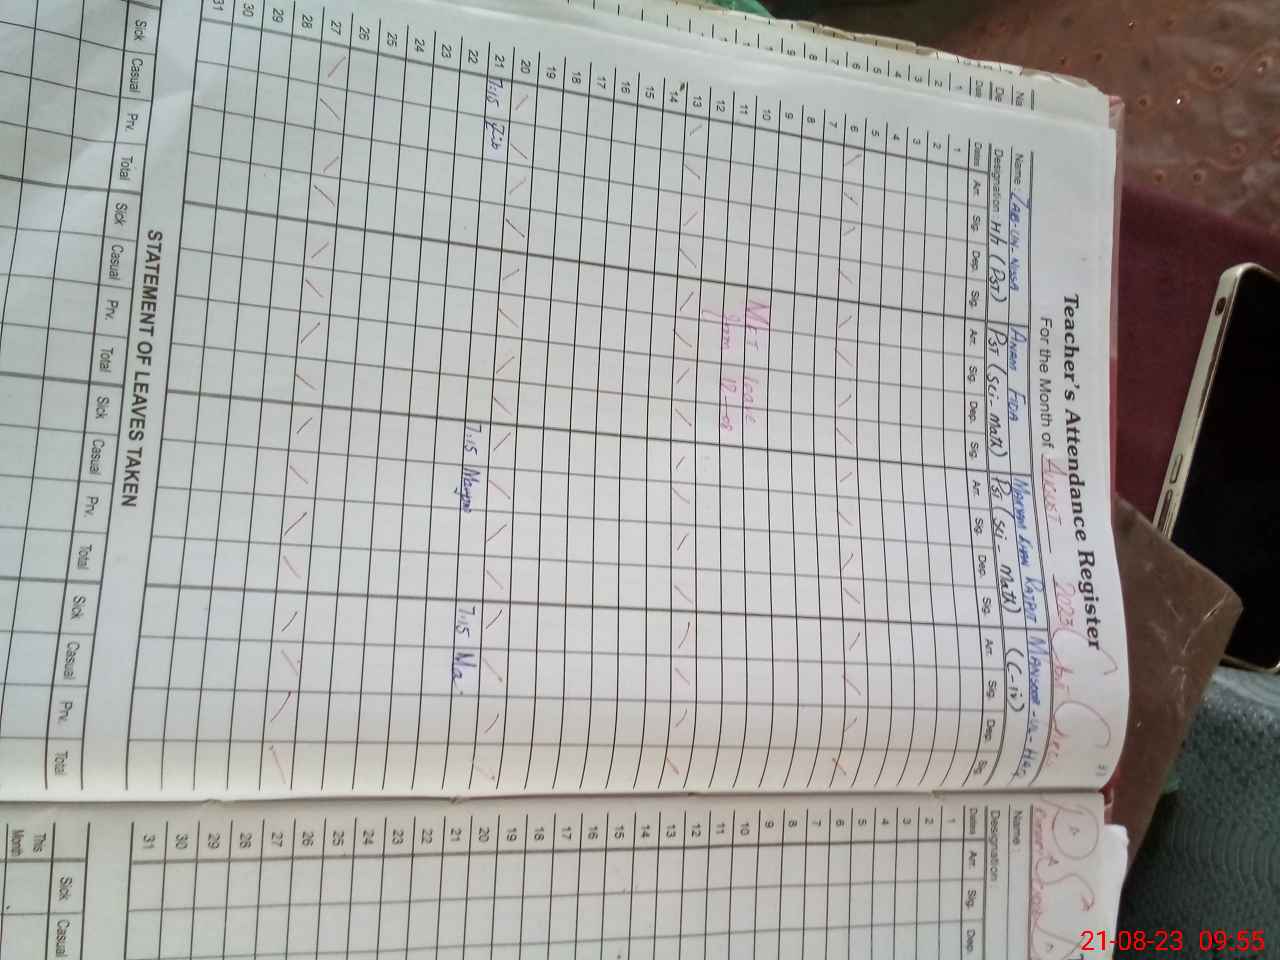 Teacher's Attendance Register
For the Month of August 2023
Name: Zaib-un-Nissa Anam Fida Maryam Khan Rajput Mansoor-ul-Haq
Designation: Hh (PST) PST (Sci-Math) PST (Sci-Math) (C-iv)
Dates Arr. Sig. Dep. Sig. Arr. Sig. Dep. Sig. Arr. Sig. Dep. Sig. Arr. Sig. Dep. Sig.
1
2
3
4
5
6
7
8
9
10
11 leave
12 from 17-08
13
14
15
16
17
18
19
20
21 7:15 Zib 7:15 7:15 Ma
22
23
24
25
26
27
28
29
30
31
STATEMENT OF LEAVES TAKEN
Sick Casual Prv. Total Sick Casual Prv. Total Sick Casual Prv. Total Sick Casual Prv. Total
Name:
Designation:
Dates Arr. Sig. Dep.
1
2
3
4
5
6
7
8
9
10
11
12
13
14
15
16
17
18
19
20
21
22
23
24
25
26
27
28
29
30
31
Sick Casual
This Month
21-08-23 09:55